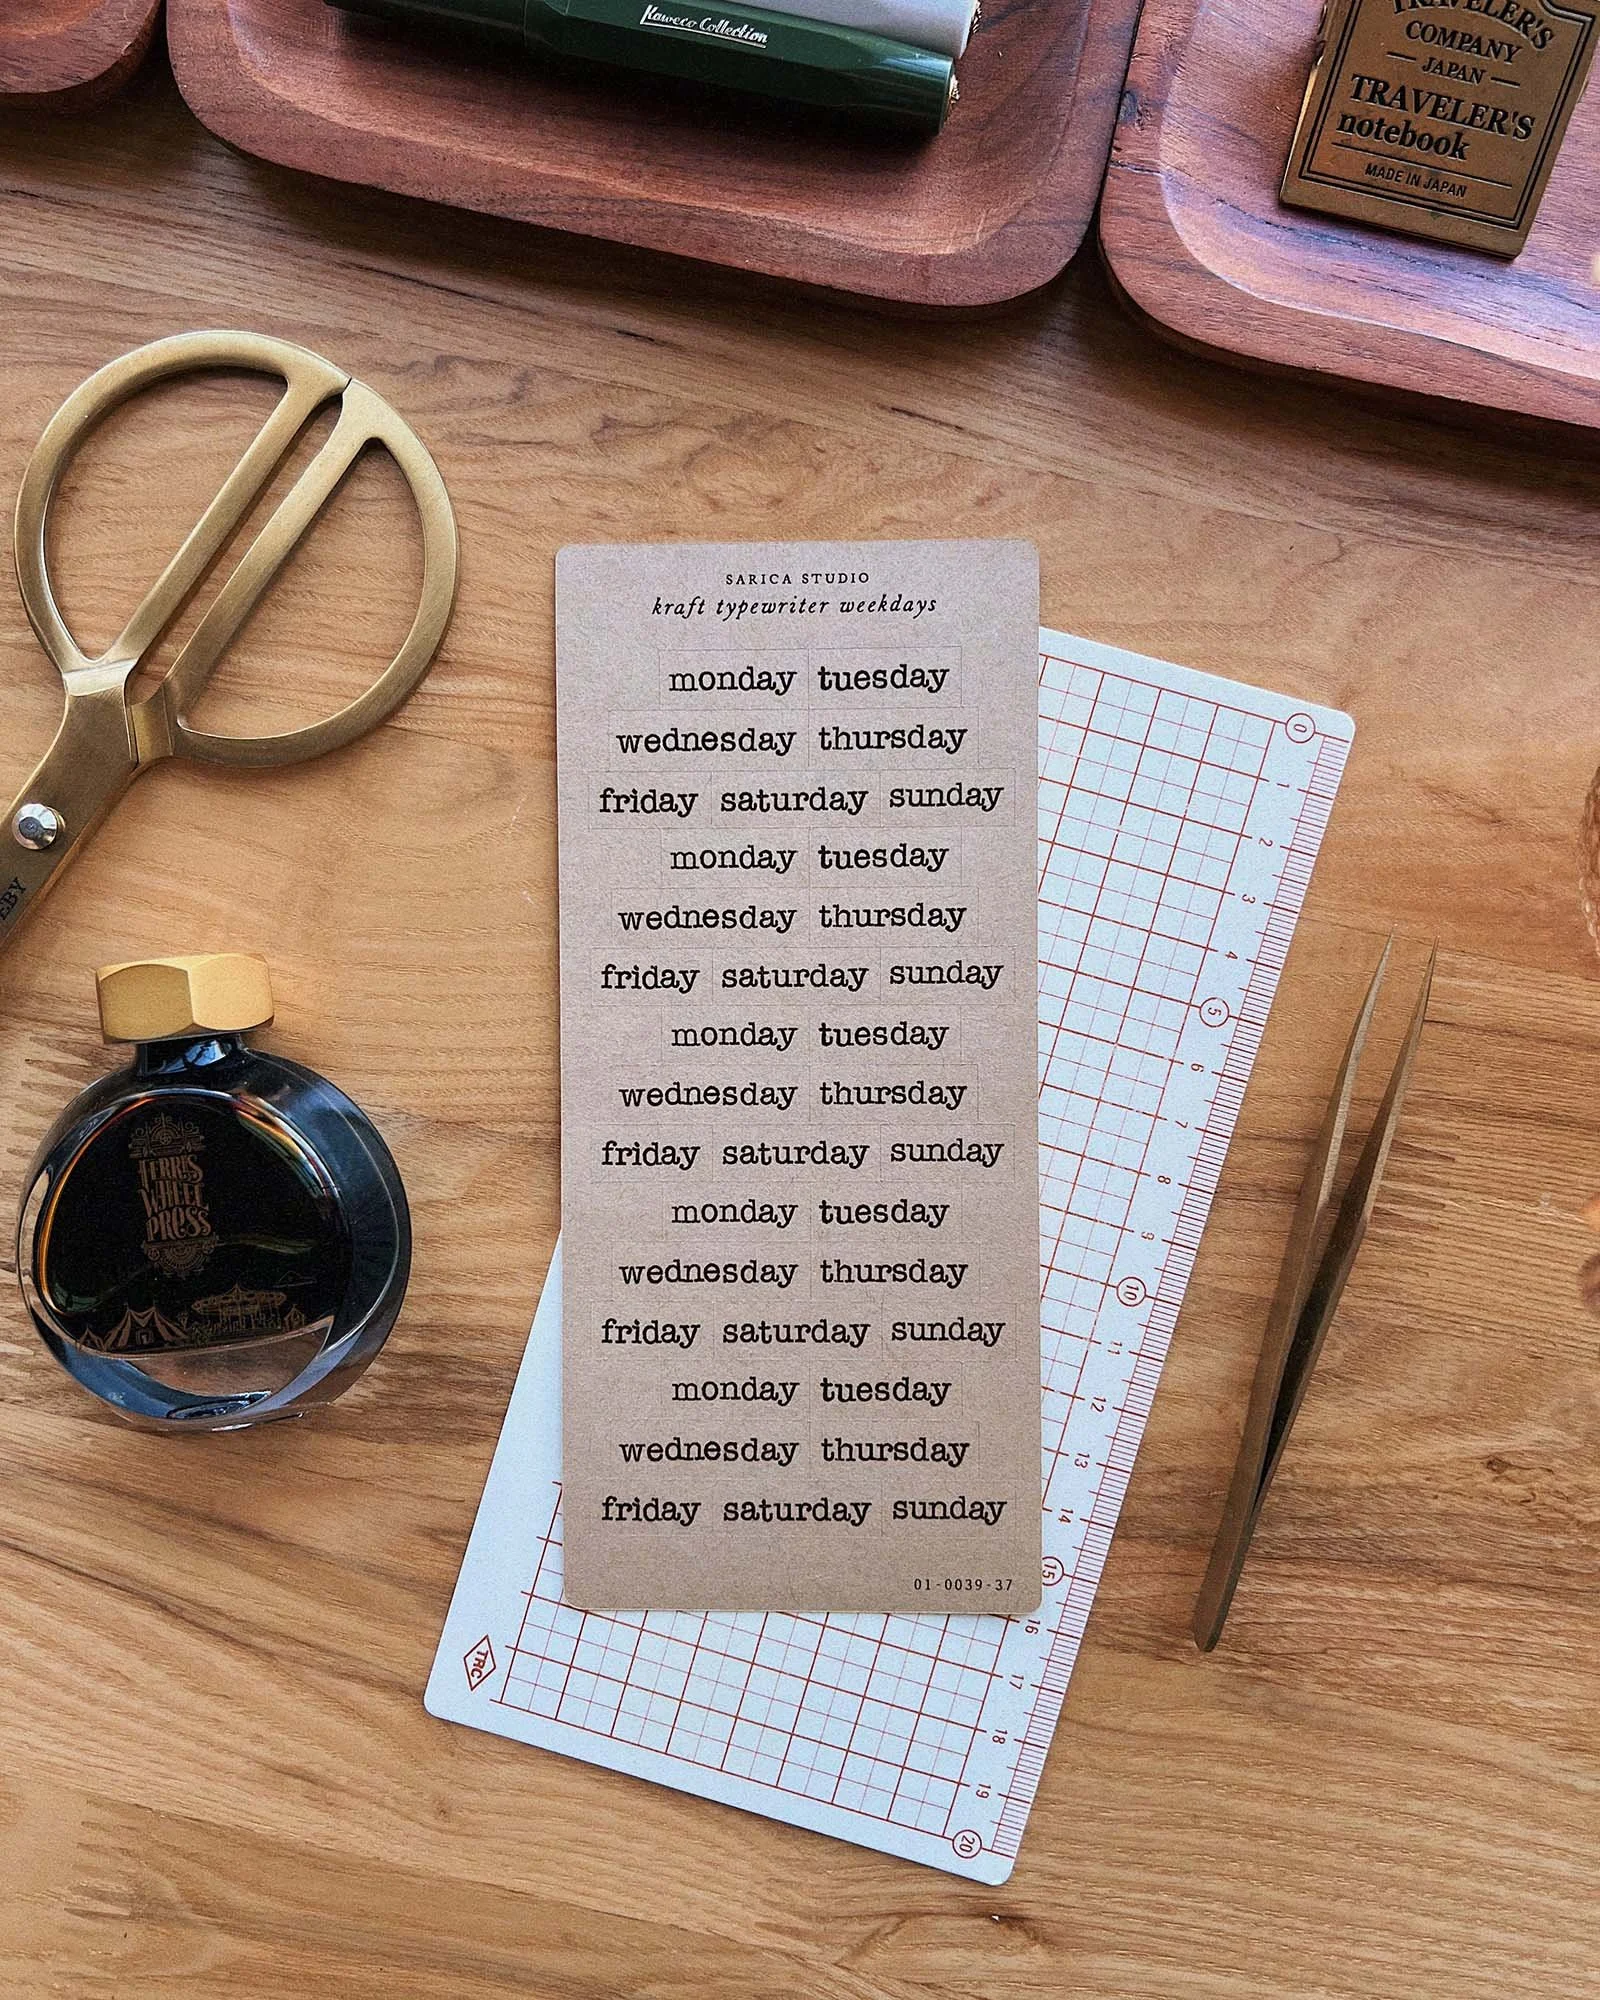 Kaweco Collection
TRAVELER'S
COMPANY
JAPAN
TRAVELER'S
notebook
MADE IN JAPAN
SARICA STUDIO
kraft typewriter weekdays
monday tuesday
wednesday thursday
friday saturday sunday
monday tuesday
wednesday thursday
friday saturday sunday
monday tuesday
wednesday thursday
friday saturday sunday
monday tuesday
wednesday thursday
friday saturday sunday
monday tuesday
wednesday thursday
friday saturday sunday
01-0039-37
0
1
2
3
4
5
6
7
8
9
10
11
12
13
14
15
16
17
18
19
20
TRC
FERRIS
WHEEL
PRESS